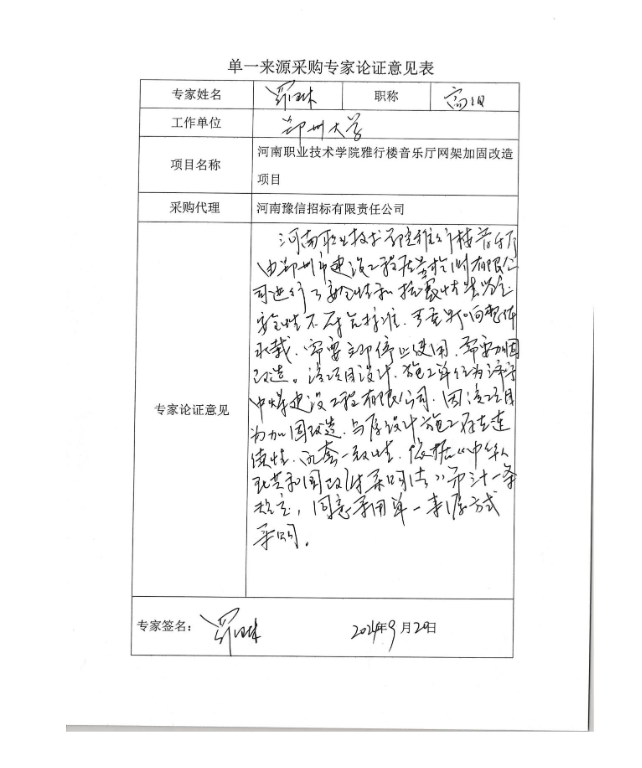 单一来源采购专家论证意见表
专家姓名
职称 高工
工作单位 郑州大学
项目名称 河南职业技术学院雅行楼音乐厅网架加固改造
项目
采购代理 河南豫信招标有限责任公司
专家论证意见
河南职业技术学院雅行楼音乐厅
由郑州市建设工程质量检测有限公
司进行了安全性和抗震性鉴定
安全性不符合标准,严重影响整体
承载,需要立即停止使用,需要加固
改造。该项目设计、施工单位为济宁
中煤建设工程有限公司,因该项目
为加固改造,与原设计施工存在连
续性、配套一致性,依据《中华人
民共和国政府采购法》第三十一条
规定,同意采用单一来源方式
采购。
专家签名:
2024年9月20日